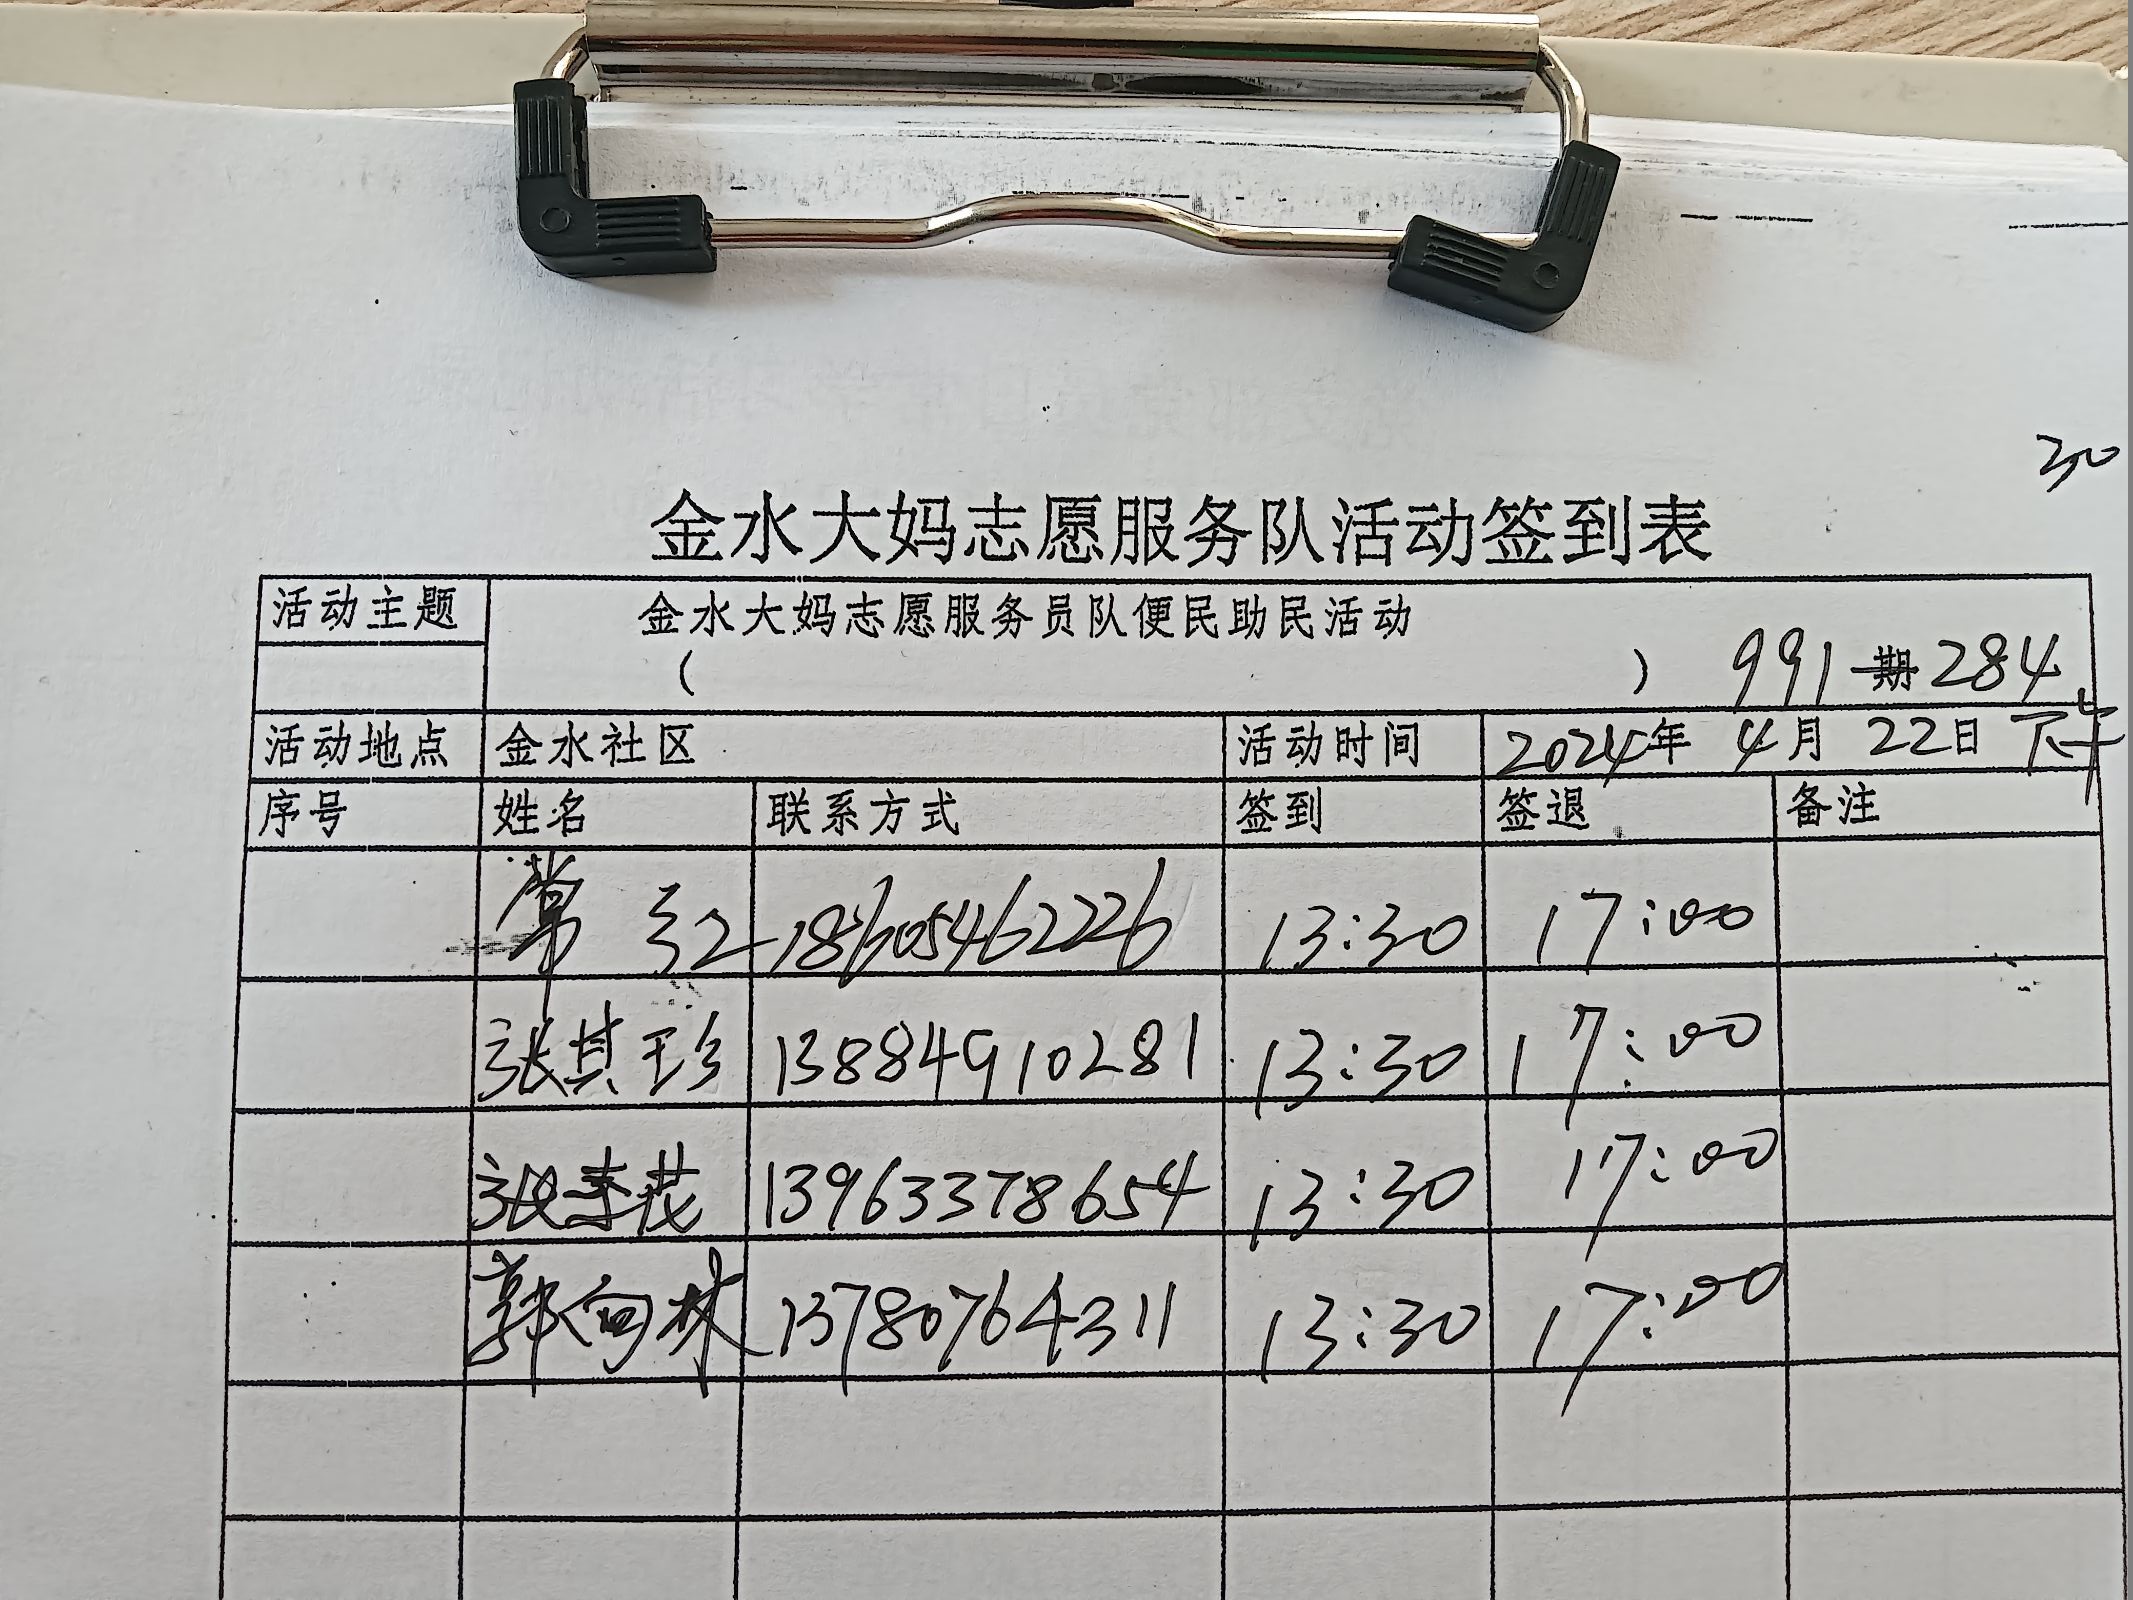 30
金水大妈志愿服务队活动签到表
活动主题 金水大妈志愿服务员队便民助民活动
( ) 991期284
活动地点 金水社区 活动时间 2024年 4月 22日 下午
序号 姓名 联系方式 签到 签退 备注
常红 18605462226 13:30 17:00
张其珍 13884910281 13:30 17:00
张季茂 13963378654 13:30 17:00
郭向林 13780764311 13:30 17:00